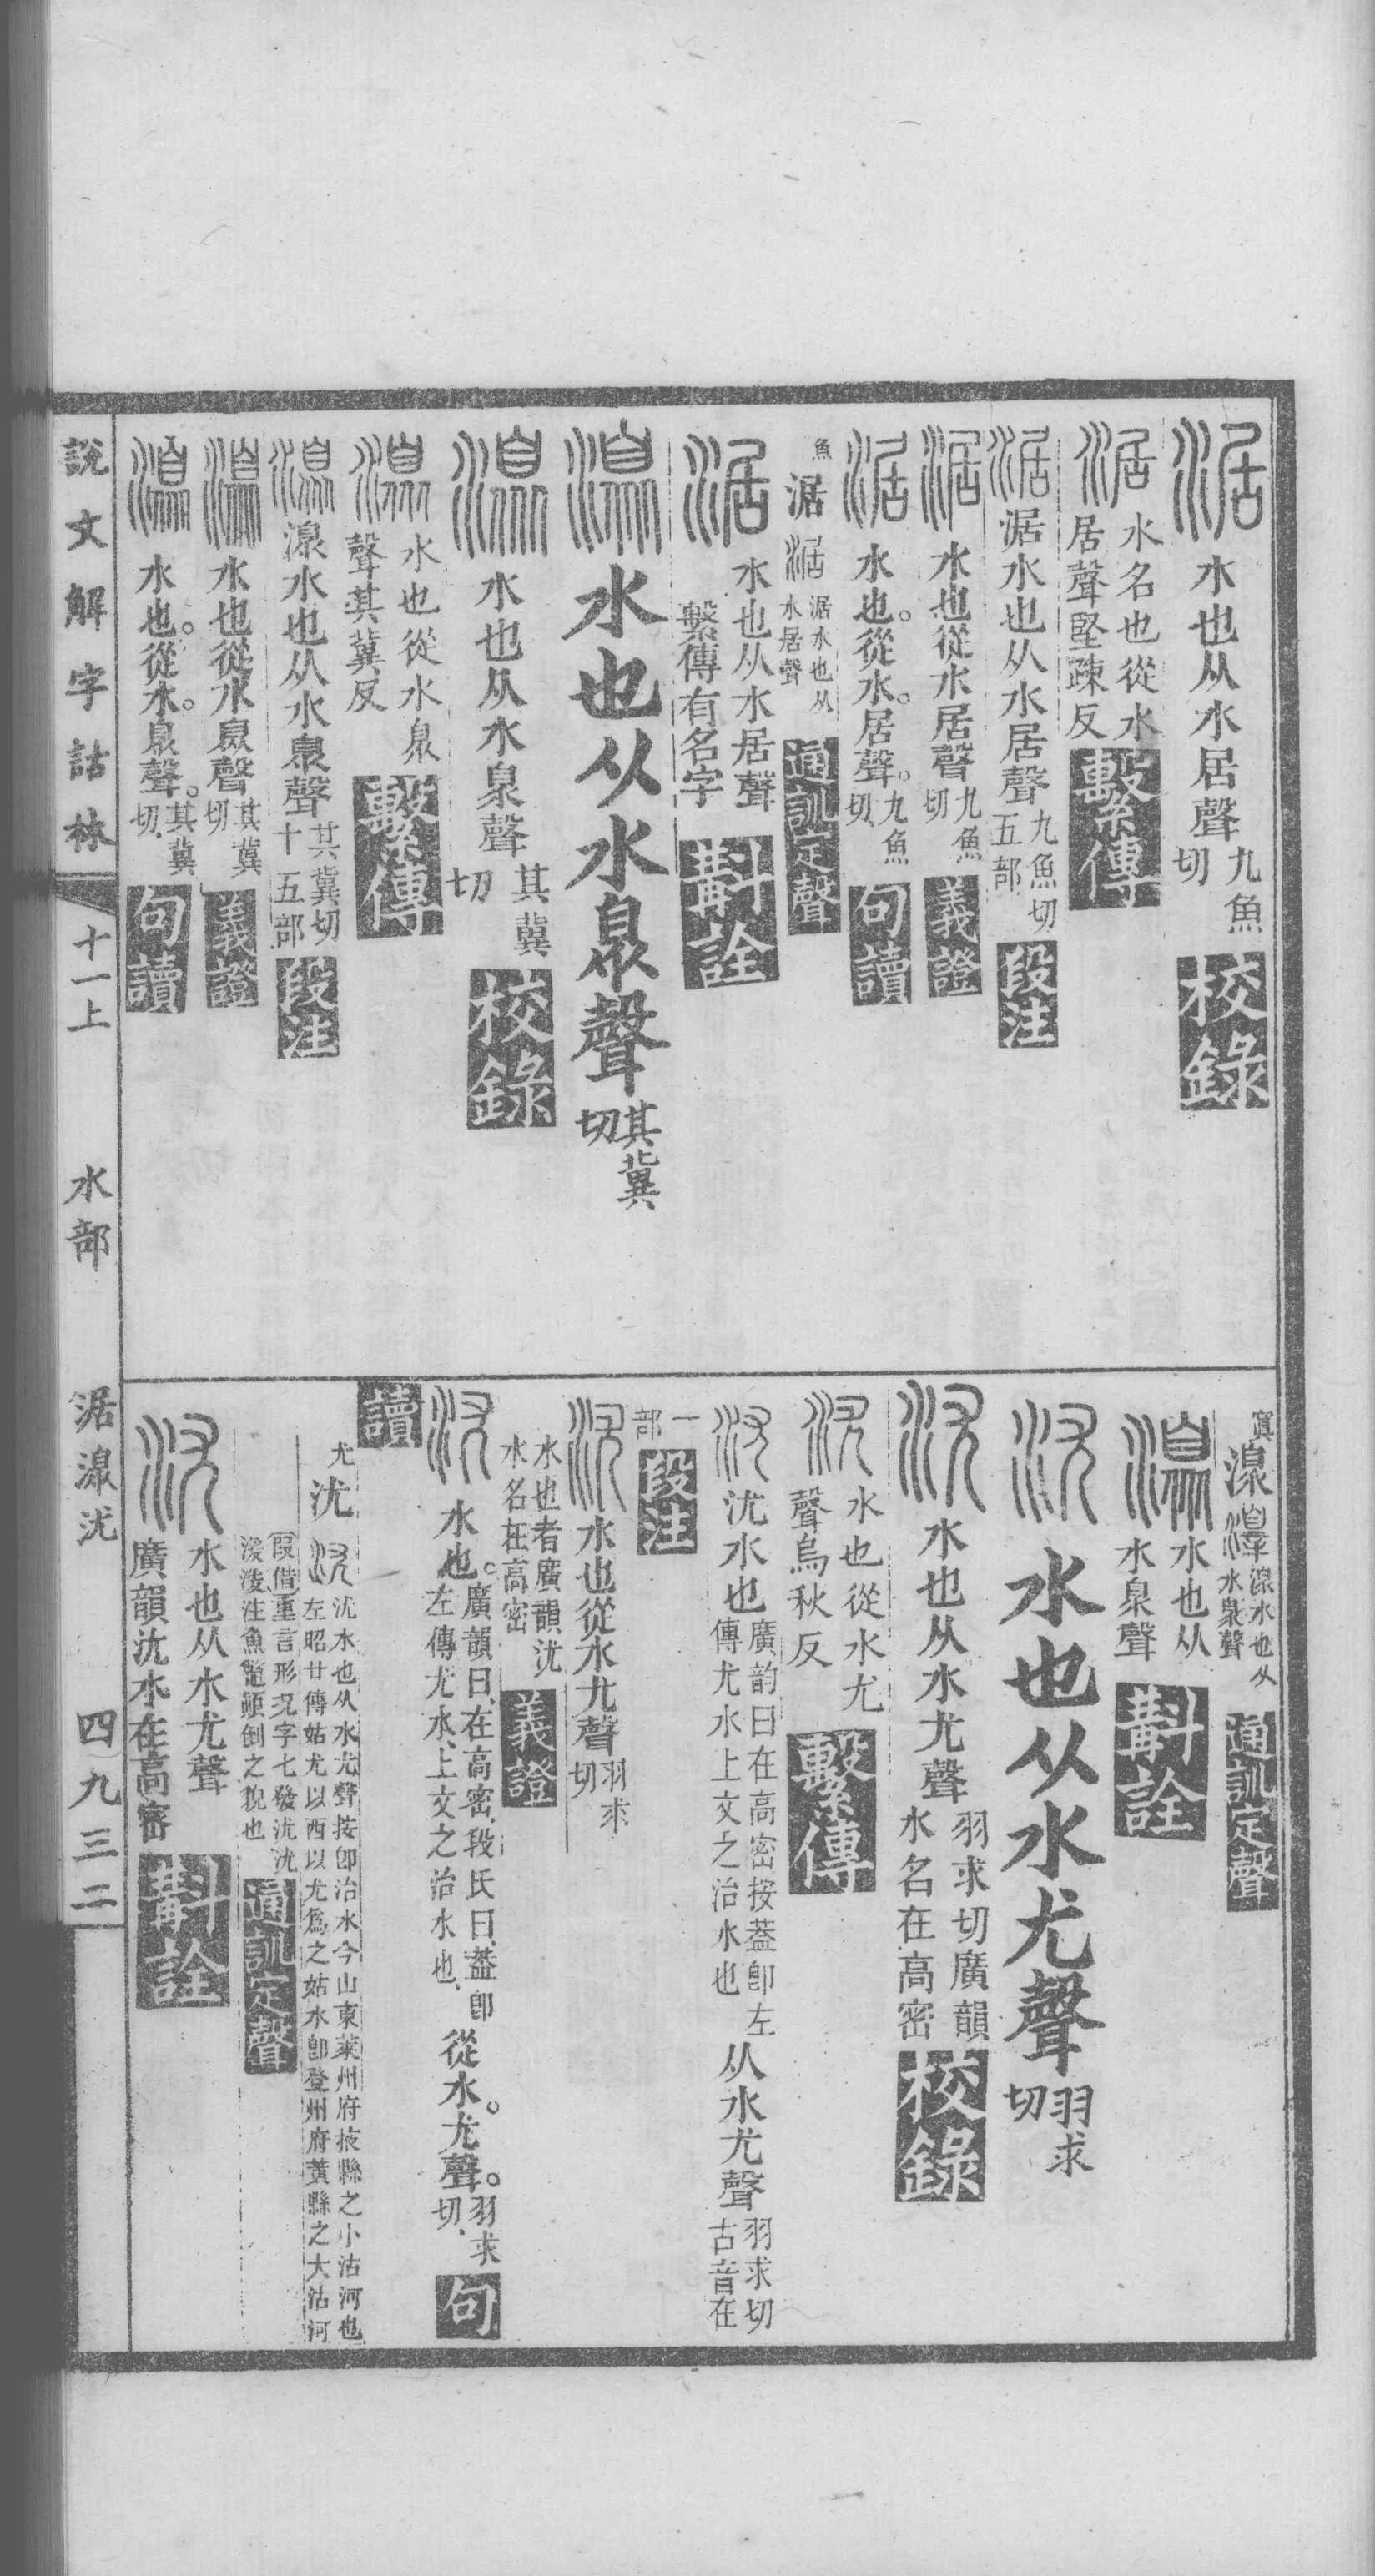 水也从水居聲九魚切 校錄
水名也從水居聲堅疎反 繫傳
涺水也从水居聲九魚切五部 段注
水也從水居聲九魚切 義證
水也。從水。居聲。九魚切 句讀
魚 涺 涺水也从水居聲 通訓定聲
水也从水居聲繫傳有名字 斠詮
水也从水臮聲其冀切
水也从水臮聲其冀切 校錄
水也從水臮聲其冀反 繫傳
湶水也从水臮聲其冀切十五部 段注
水也從水臮聲其冀切 義證
水也。從水。臮聲。其冀切 句讀
水也从水臮聲 通訓定聲
水也从水臮聲 斠詮
水也从水尤聲羽求切
水也从水尤聲羽求切廣韻水名在高密 校錄
水也從水尤聲烏秋反 繫傳
沋水也廣韵曰在高密按葢卽左傳尤水上文之治水也从水尤聲羽求切古音在
一部 段注
水也從水尤聲羽求切
水也者廣韻沋水名在高密 義證
水也。廣韻曰、在高密、段氏曰、葢卽左傳尤水、上文之治水也、從水。尤聲。羽求切、句
讀
尤 沋 沋水也从水尤聲按卽治水今山東萊州府掖縣之小沽河也左昭廿傳姑尤以西以尤爲之姑水卽登州府黃縣之大沽河
叚借重言形況字七發沋沋湲湲注魚鼈顚倒之貌也 通訓定聲
水也从水尤聲廣韻沋水在高密 斠詮
說文解字詁林 十一上 水部 涺 沋 四九三二